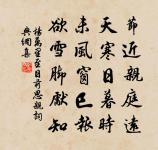 節近親庭遠
天寒日暮時
未風窗已報
欲雪腳獻知
楊萬里至日前思親詞
典網集